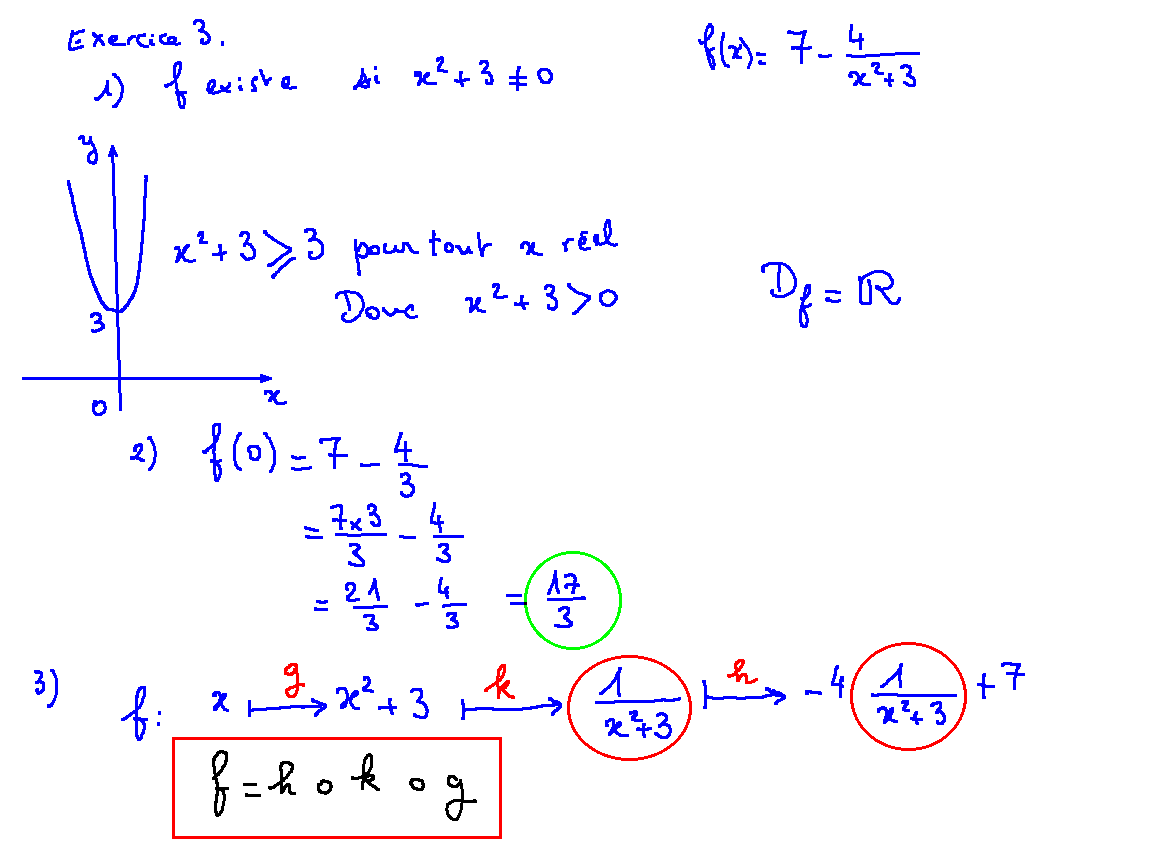 Exercice 3.
f(x) = 7 - 4/(x²+3)
1) f existe si x²+3 ≠ 0
y
x²+3 ⩾ 3 pour tout x réel
Donc x²+3 > 0
D_f = ℝ
3
0
x
2) f(0) = 7 - 4/3
= 7×3/3 - 4/3
= 21/3 - 4/3 = 17/3
3) f: x ⟼ x²+3 ⟼ 1/(x²+3) ⟼ -4 1/(x²+3) + 7
g k h
f = h ∘ k ∘ g